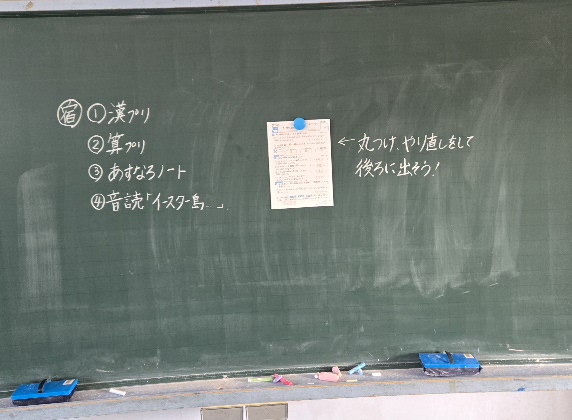 宿 ①漢プリ
②算プリ
③あすなろノート
④音読「イースター島…」
←丸つけ、やり直しをして
後ろに出そう!